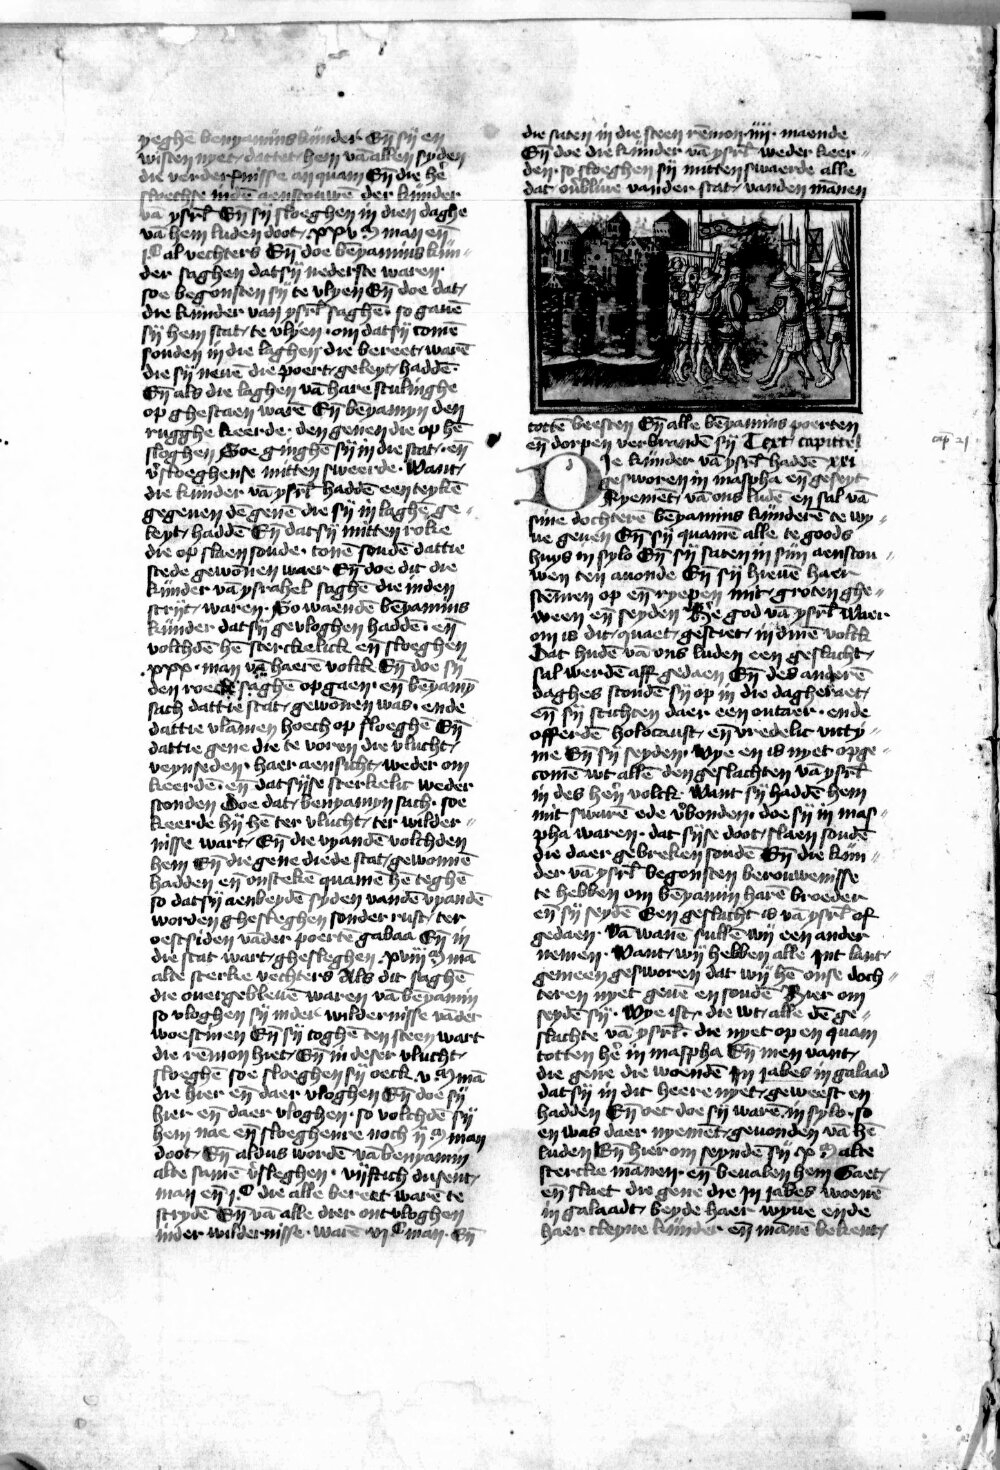 yeghē benyamīns kīnder Eñ sij en
wisten nyet dattet hem vā allen syden
die verdernisse an quam Eñ die hē
sloechse indē aenscouwē der kīnder
vā ysrl̄ Eñ sij sloeghen in dien daghe
vā hem luden doot xxv M man eñ
i C al vechters Eñ doe bēyamins kīn-
der saghen dat sij nederste waren
soe begonsten sij te vlyen Eñ doe dat
die kīnder van ysrl̄ saghē so gauē
sij hem stat te vlyen om dat sij comē
souden in die laghen die bereet warē
die sij neuē die poert geleyt haddē
Eñ als die laghen vā hare sculinghe
op ghestaen warē Eñ bēyamyn den
rugghe keerde den genen die op hē
sloghen Soe ginghē sij in die stat eñ
v̄sloeghense mitten sweerde Want
die kīnder vā ysrl̄ haddē een teykē
gegeuen dē genē die sij in laghē ge-
leyt haddē Eñ dat sij mitten roke
die op slaen soude tonē soudē dattie
stede gewōnen waer Eñ doe dit die
kīnder vā ysrahel saghē die inden
strijt waren So waendē bēyamins
kīnder dat sij gevloghen haddē eñ
volchdē hē sterckelick eñ sloeghen
xxx man vā haerē volck Eñ doe sij
den roeck saghē op gaen eñ bēyamȳ
sach dattie stat gewōnen was ende
dattie vlāmen hoech op sloeghē Eñ
dattie gene die te voren die vlucht
veynseden haer aensicht weder om
keerdē eñ dat sijse sterkelic weder
stonden Doe dat benyamyn sach soe
keerde hij hē ter vlucht ter wilder-
nisse wart Eñ die vyandē volchden
hem Eñ die gene die de stat gewonnē
hadden eñ onstekē quamē hē teghē
so dat sij aen beydē syden vandē vyandē
worden ghesleghen sonder rust ter
oestsiden vāder poertē gabaa Eñ in
die stat wart ghesleghen xviij M mā
alte sterke vechters Als dit saghē
die ouergebleuē waren vā bēyamin
so vloghen sij inder wildernisse vāder
woestinen Eñ sij toghē ten steen wart
die rēmon hiet Eñ in deser vlucht
sloeghē soe sloeghen sij oeck v M mā
die hier eñ daer vloghen Eñ doe sij
hier eñ daer vloghen so volchdē sij
hem nae eñ sloeghenre noch ij M man
doot Eñ aldus wordē vā benyamin
alte samē v̄sleghen vijftich dusent
man eñ i C die alle bereet warē te
strydē Eñ vā alle dier ontvloghen
inder wildernisse warē vi C man Eñ
die saten in die steen rēmon iiij maende
Eñ doe die kīnder vā ysrl̄ weder keer-
den so sloeghen sij mitten swaerde alle
dat oublure vander stat vanden mānen
totte beesten Eñ alle bēyamins poerten
eñ dorpen verbrandē sij Text capittel
Die kīnder vā ysrl̄ haddē xxi
gesworen in maspha eñ geseyt
Nyemēt vā ons ludē en sal vā
sine dochterē bēyamins kīnderē te wy-
ue geuen Eñ sij quamē alle te goods
huys in sylo Eñ sij saten in sijn aenscou-
wen ten auonde Eñ sij hieuē haer
stēmen op eñ ryepen mit groten ghe-
ween eñ seyden He god vā ysrl̄ Waer
om is dit quaet gesciet in dinē volck
Dat hudē vā ons luden een geslacht
sal werdē aff gedaen Eñ des anderē
daghes stondē sij op in die dagheraet
eñ sij stichten daer een outaer ende
offerdē holocaust eñ vredelic victy-
me Eñ sij seyden Wye en is nyet opge-
comē wt allē den geslachten vā ysrl̄
in des hern̄ volck Want sij haddē hem
mit swarē ede v̄bonden doe sij in mas-
pha waren dat sijse doot slaen soudē
die daer gebreken soudē Eñ die kīn-
der vā ysrl̄ begonsten berouwenisse
te hebben om bēyamin harē broeder
eñ sij seydē Een geslacht is vā ysrl̄ of
gedaen Vā wanē sullē wij een ander
nemen Want wij hebben alle int lant
gemeen gesworen dat wij hē onse doch-
teren nyet geuē en soudē Hier om
seydē sij Wye ist die wt alle dē ge-
slachte vā ysrl̄ die nyet op en quam
totten hē in maspha Eñ men vant
die gene die woendē in iabes in galaad
dat sij in dit heere nyet geweest en
hadden Eñ oec doe sij warē in sylo so
en was daer nyemēt geuonden vā hē
luden Eñ hier om seyndē sij x M alte
stercke mānen eñ beualen hem Gaet
eñ slaet die gene die in iabes woenē
in galaadt beyde haer wyue ende
haer cleyne kīnder eñ mānē bekent
cap 21